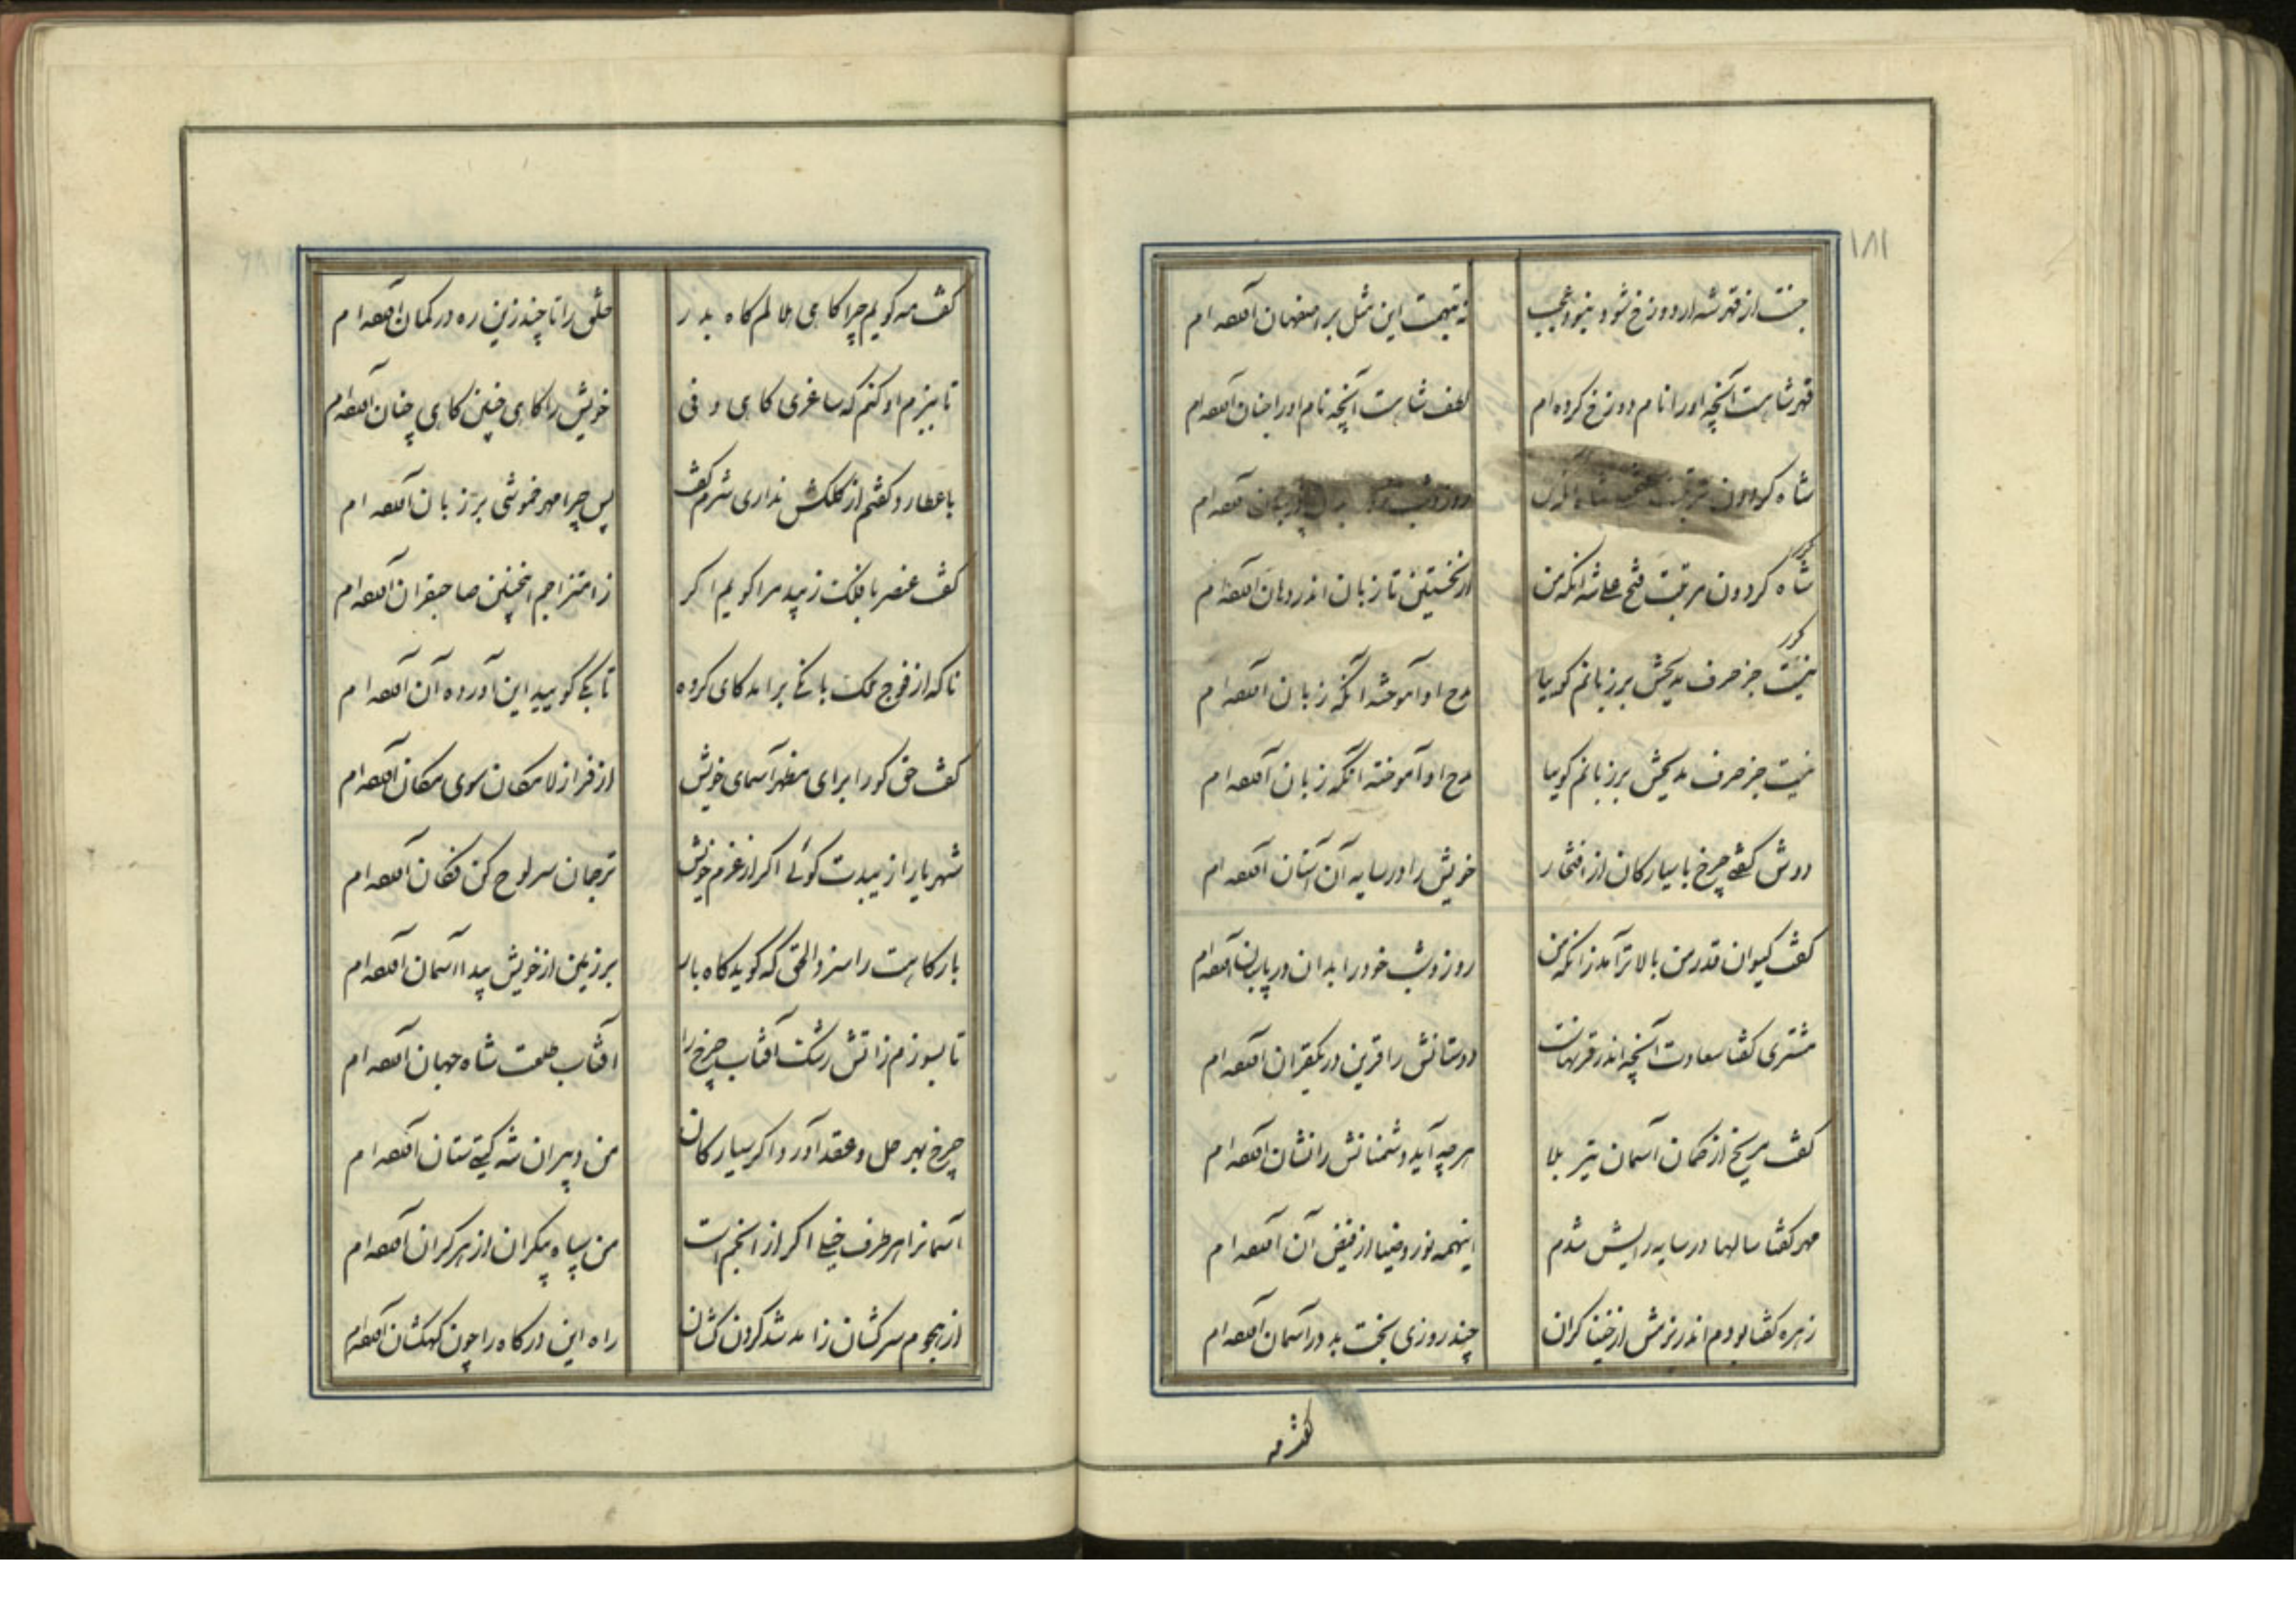 ۱۸۱
جنت از قهر شه ار دوزخ شود نبود عجب
نه تهیت این مثل بر اصفهان آفکنده ام
قهر شاهست آنچه اورا نام دوزخ کرده ام
لطف شاهست آنچه نام اورا جنان آفکنده ام
شاه کردون مرتبت
روز و شب
شاه کردون مرتبت فتح علی شه آنکه من
از نخستین تا زبان اندر دهان آفکنده ام
مکرر
نیست جز حرف مدیحش بر زبانم کوییا
مدح او آموخته آنکه زبان آفکنده ام
نیست جز حرف مدیحش بر زبانم کوییا
مدح او آموخته آنکه زبان آفکنده ام
دوش کفتی چرخ با سیارکان از افتخار
خویش را در سایه آن آستان آفکنده ام
کفت کیوان قدر من بالاتر آمد زانکه من
روز و شب خود را بدان در پاسبان آفکنده ام
مشتری کفتا سعادت آنچه اندر قرنهاست
دوستانش را قرین در یکقران آفکنده ام
کفت مریخ از کمان آسمان تیر بلا
هرچه آید دشمنانش را نشان آفکنده ام
مهر کفتا سالها در سایه رایش شدم
اینهمه نور و ضیا از فیض آن آفکنده ام
زهره کفتا بودم اندر بزمش از خنیاکران
چند روزی بخت بد در آسمان آفکنده ام
کفت مه
کفت مه کویم چرا کاهی هلالم کاه بدر
خلق را تا چند زین ره در کمان آفکنده ام
تا ببزم او کنم که ساغری کاهی دفی
خویش را کاهی چنین کاهی چنان آفکنده ام
با عطارد کفتم از کلکش نداری شرم کفت
پس چرا مهر خموشی بر زبان آفکنده ام
کفت عنصر با فلک زیبد مرا کویم اکر
ز امتزاجم اینچنین صاحبقران آفکنده ام
ناکه از فوج ملک بانکی برآمد کای کروه
تا بکی کویید این آورده آن آفکنده ام
کفت حق کورا برای مظهر اسمای خویش
از فراز لامکان سوی مکان آفکنده ام
شهریارا زیبدت کوئی اکر از عزم خویش
ترجمان سر لوح کن فکان آفکنده ام
بارکاهت را سزد الحق که کوید کاه بار
بر زمین از خویش پیدا آسمان آفکنده ام
تا بسوزم ز آتش رشک آفتاب چرخ را
آفتاب طلعت شاه جهان آفکنده ام
چرخ بهر حل و عقد آورد اکر سیارکان
من دبیران شه کیتی ستان آفکنده ام
آسمانرا هر طرف خیلی اکر از انجم است
من سپاه بیکران از هر کران آفکنده ام
از هجوم سرکشان ز آمد شد کردن کشان
راه این درکاه را چون کهکشان آفکنده ام